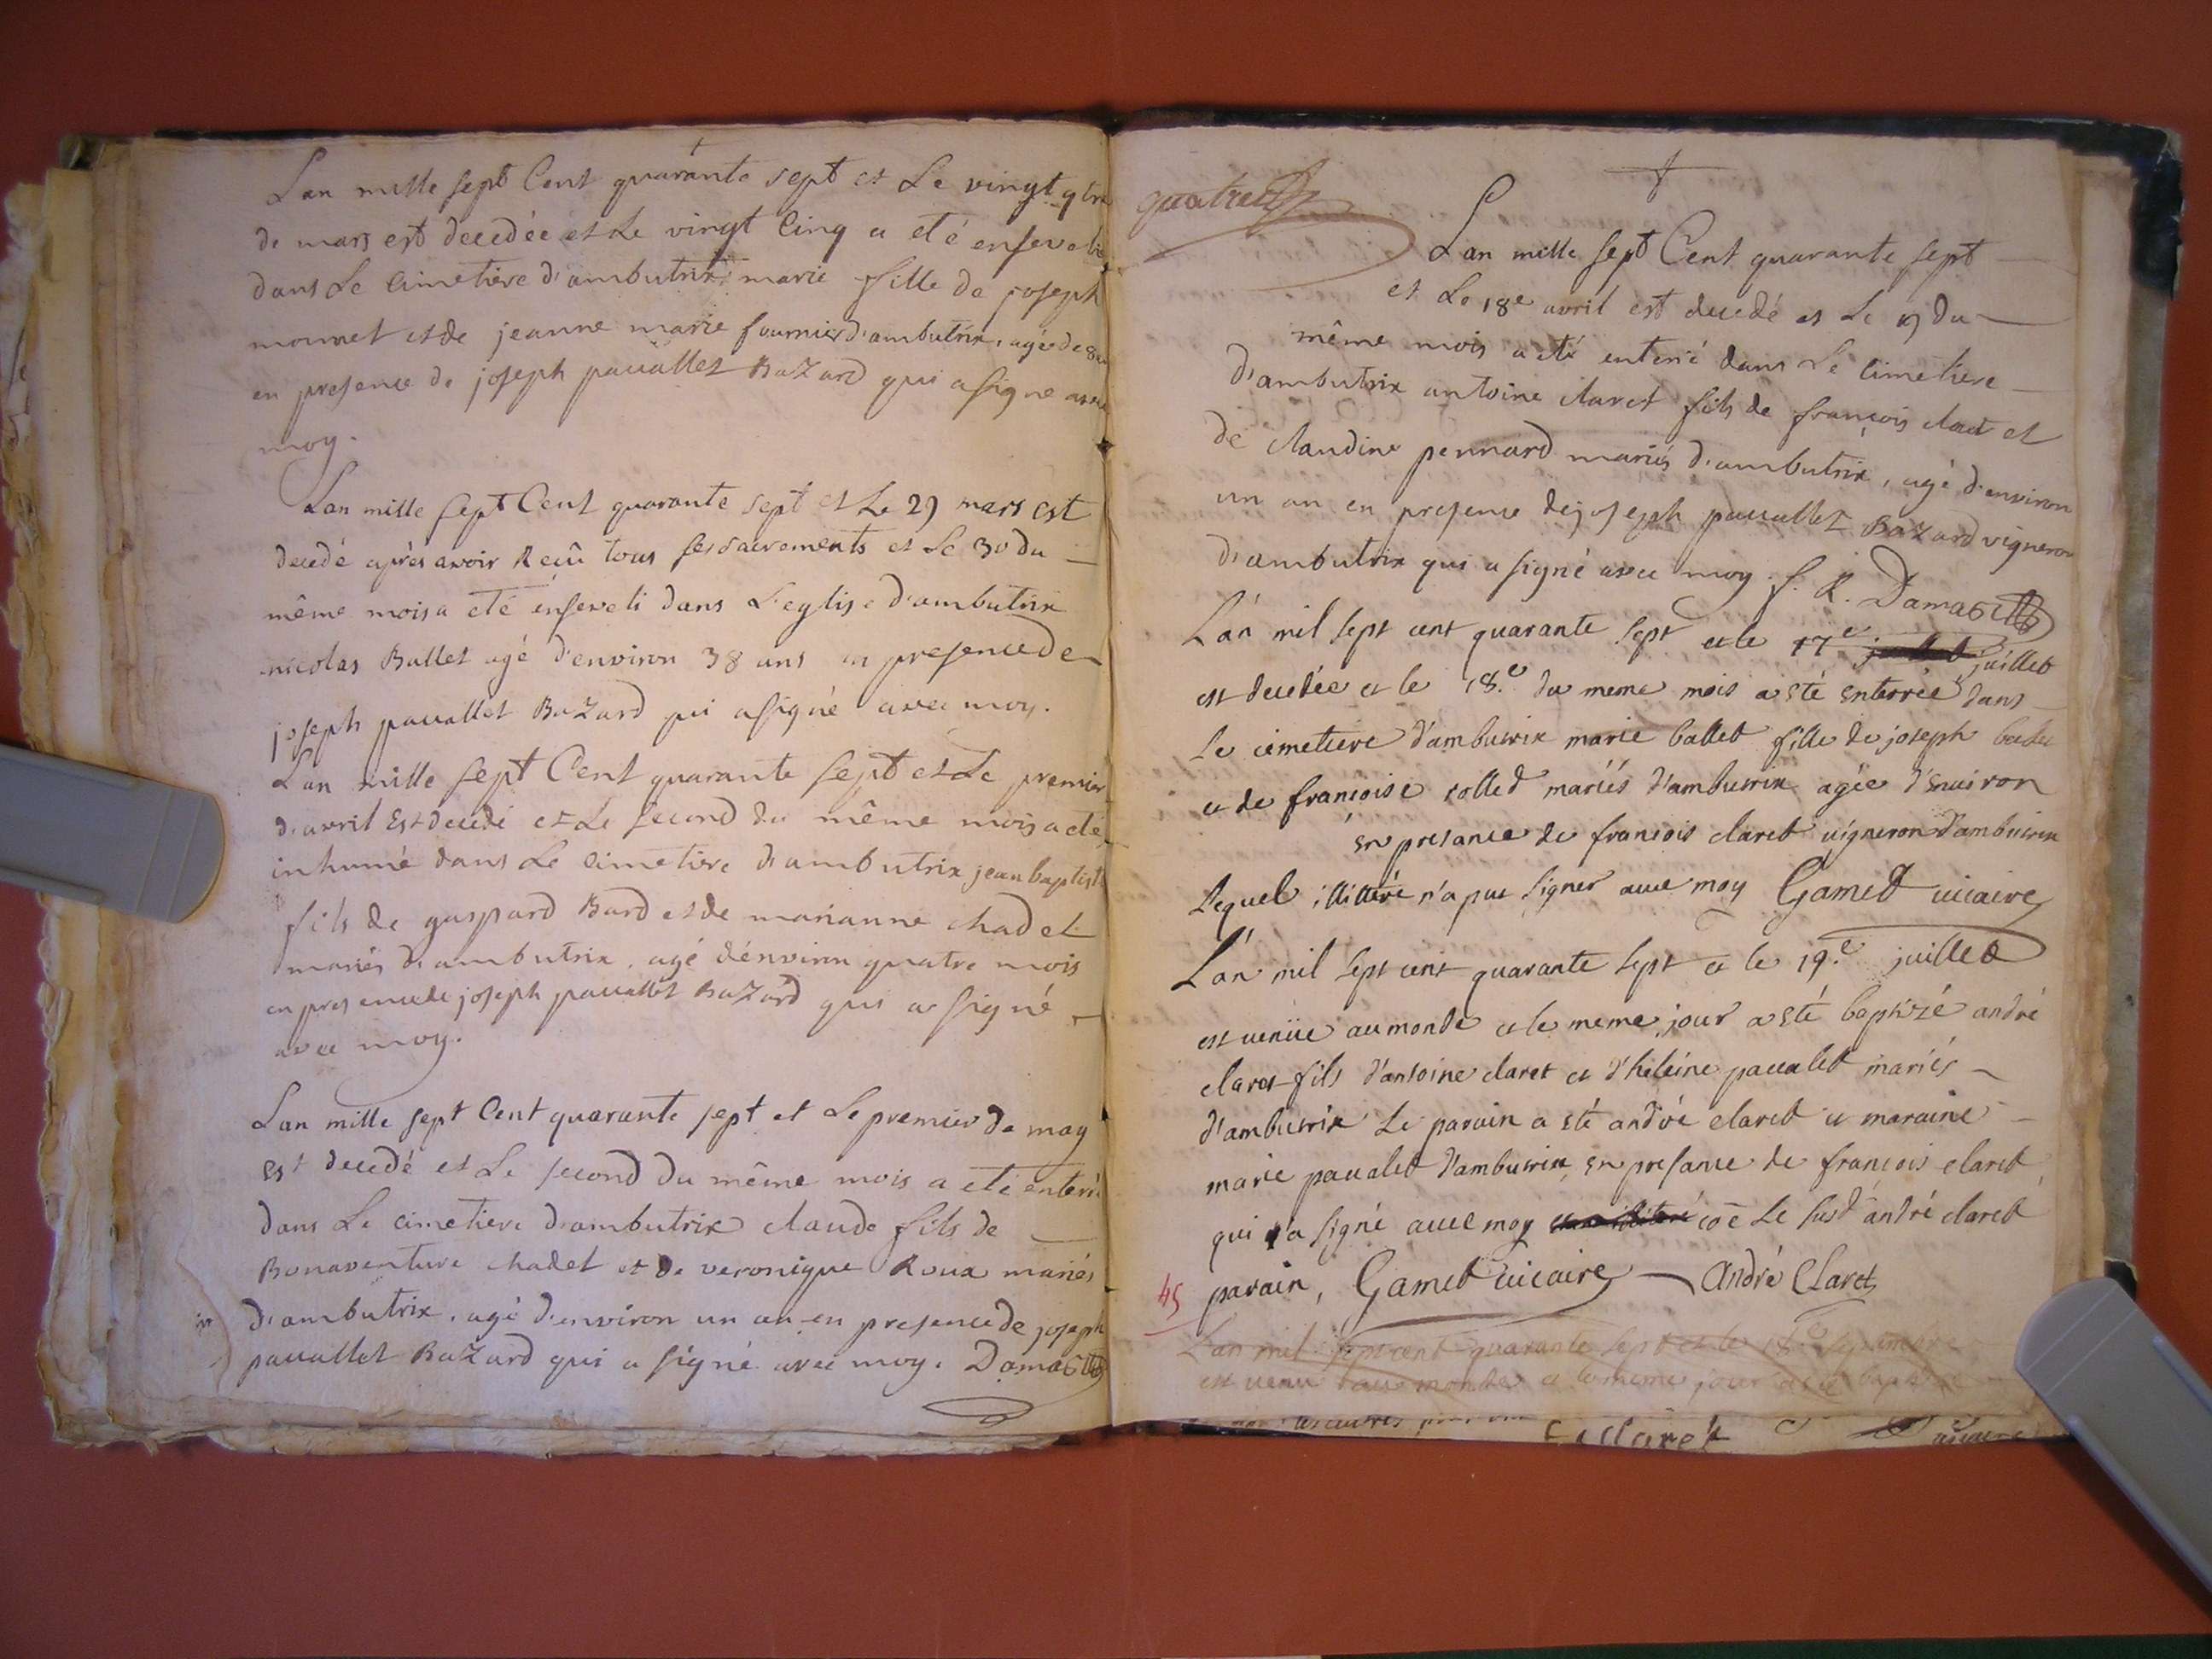 Lan mille sept Cent quarante sept et Le vingt qtre
de mars est decedée et Le vingt Cinq a eté ensevelie
dans Le Cimetiere d'ambutrix marie fille de joseph
monnet et de jeanne marie fournier d'ambutrix, agée de
en presence de joseph pauallet BaZard qui a signé avec
moy.
Lan mille sept Cent quarante sept et Le 29 mars est
decedé après avoir Reçû tous ses sacrements et Le 30 du
même mois a eté enseveli dans L'eglise d'ambutrix
nicolas Ballet agé d'environ 38 ans en presence de
joseph pauallet BaZard qui a signé avec moy.
Lan mille sept Cent quarante sept et Le premier
d'avril Est decedé et Le second du même mois a eté
inhumé dans Le Cimetiere d'ambutrix jean baptiste
fils de gaspard Bard et de marianne chadet
mariés d'ambutrix, agé d'énviron quatre mois
en presence de joseph pauallet BaZard qui a signé
avec moy.
Lan mille sept Cent quarante sept et Le premier de may
Est decedé et Le second du même mois a eté enterré
dans Le Cimetiere d'ambutrix claude fils de
Bonaventure chadet et de veronique Roux mariés
d'ambutrix, agé d'environ un an en presence de joseph
pauallet BaZard qui a signé avec moy. Damas
quatre
Lan mille sept Cent quarante sept
et Le 18e avril est decedé et Le 19 du
même mois a eté enterré dans Le Cimetiere
d'ambutrix antoine claret fils de françois claret et
de claudine pennard mariés d'ambutrix, agé d'environ
un an en presence de joseph pauallet BaZard vigneron
d'ambutrix qui a signé avec moy. f. R. Damas
L'an mil sept cent quarante sept et le 17e juillet
est decedée et le 18.e du meme mois a sté enterrée dans
Le cemetiere d'ambutrix marie ballet fille de joseph ballet
et de francoise collet mariés d'ambutrix agée d'enuiron
en presance de francois claret uigneron d'ambutrix
Lequel illitteré n'a pue signer auec moy Gamet uicaire
L'an mil sept cent quarante sept et le 19.e juillet
est uenüe au monde et le meme jour a sté baptizé andré
claret fils d'antoine claret et d'heleine pauallet mariés
d'ambutrix Le parain a sté andré claret et maraine
marie pauallet d'ambutrix, en presance de francois claret
qui n'a signé auec moy cõe Le susd andré claret
parain, Gamet uicaire André Claret
45
L'an mil sept cent quarante sept et le 18e septembre
est uenu au monde et le meme jour a sté baptizé